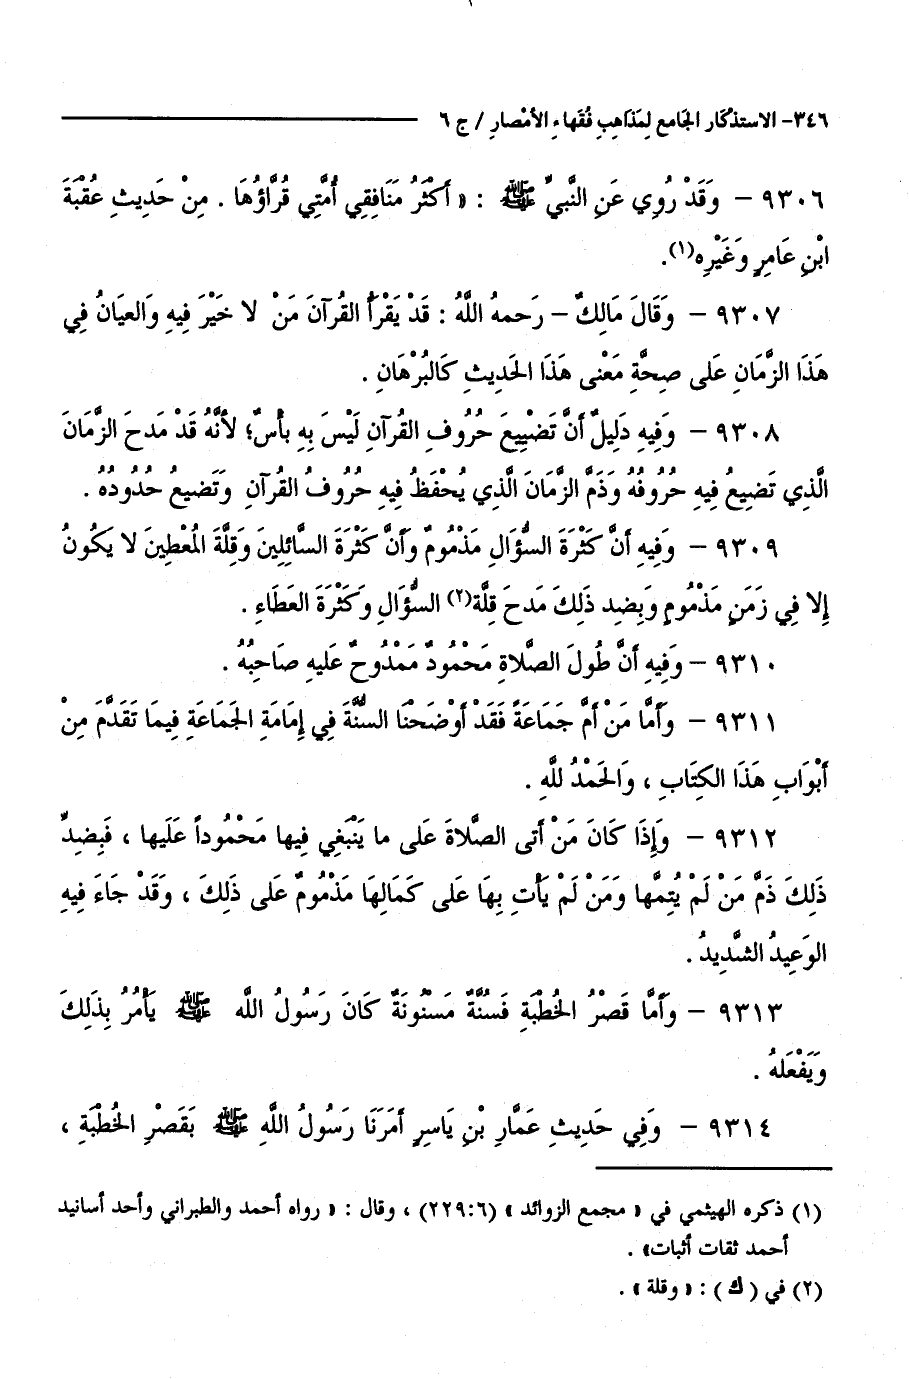 ٣٤٦- الاستذْكَار الجَامع لِمَذَاهِبِ فُقَهاءِ الأَمْصَارِ / ج ٦
٩٣٠٦ – وَقَدْ رُوِي عَنِ النَّبيِّ ﷺ : « أَكْثَرُ مَنَافِقِي أُمَّتِي قُرَّاؤُهَا . مِنْ حَدِيثِ عُقبَةَ
ابْنِ عَامِرٍ وَغَيْرِه(١).
٩٣٠٧ – وَقَالَ مَالِكٌ – رَحمهُ اللَّهُ : قَدْ يَقْرَأُ القُرآنَ مَنْ لا خَيْرَ فِيهِ وَالعيَانُ فِي
هَذَا الزَّمَانِ عَلى صِحَّةِ مَعْنى هَذَا الحَدِيثِ كَالبُرْهَانِ .
٩٣٠٨ – وَفِيهِ دَلِيلٌ أَنَّ تَضْيِيعَ حُرُوفِ القُرآنِ لَيْسَ بِهِ بأسٌ؛ لأَنَّهُ قَدْ مَدحَ الزَّمَانَ
الَّذِي تَضِيعُ فِيهِ حُرُوفُهُ وَذَمَّ الزَّمَانَ الَّذِي يُحْفَظُ فِيهِ حُرُوفُ القُرآنِ وَتَضيعُ حُدُودُهُ .
٩٣٠٩ – وَفِيهِ أَنَّ كَثْرَةَ السُّؤَالِ مَذْمُومٌ وأَنَّ كَثْرَةَ السَّائِلِينَ وَقِلَّةَ المُعْطِينَ لا يَكُونُ
إِلا فِي زَمَنٍ مَذْمُومٍ وَبِضِدِ ذَلِكَ مَدحَ قِلَّة(٢) السُّؤَالِ وَكَثْرَةَ العَطَاءِ .
٩٣١٠ – وَفِيهِ أَنَّ طُولَ الصَّلاةِ مَحْمُودٌ مَمْدُوحٌ عَليهِ صَاحِبُهُ .
٩٣١١ – وَأَمَّا مَنْ أَمَّ جَمَاعَةً فَقَدْ أَوْضَحْنَا السُّنَّةَ فِي إِمَامَةِ الجَمَاعَةِ فِيمَا تَقَدَّمَ مِنْ
أَبْوَابِ هَذَا الكِتَابِ ، وَالحَمْدُ للَّهِ .
٩٣١٢ – وَإِذَا كَانَ مَنْ أَتى الصَّلاةَ عَلَى ما يَنْبَغِي فِيها مَحْمُوداً عَلَيها ، فَبِضدٍّ
ذَلِكَ ذَمَّ مَنْ لَمْ يُتِمَّها وَمَنْ لَمْ يَأتِ بِهَا عَلى كَمَالِهَا مَذْمُومٌ عَلى ذَلِكَ ، وَقَدْ جَاءَ فِيهِ
الوَعِيدُ الشَّدِيدُ .
٩٣١٣ – وَأَمَّا قَصْرُ الخُطْبَةِ فَسُنَّةٌ مَسْنُونَةٌ كَانَ رَسُولُ اللَّه ﷺ يَأمُرُ بِذَلِكَ
وَيَفْعَلهُ .
٩٣١٤ – وَفِي حَدِيثِ عَمَّارِ بْنِ يَاسِرٍ أَمَرَنَا رَسُولُ اللَّهِ ﷺ بَقَصْرِ الخُطْبَةِ ،
(١) ذكره الهيثمي في « مجمع الزوائد » (٢٢٩:٦) ، وقال : « رواه أحمد والطبراني وأحد أسانيد
أحمد ثقات أثبات» .
(٢) في ( ك ) : « وقلة » .